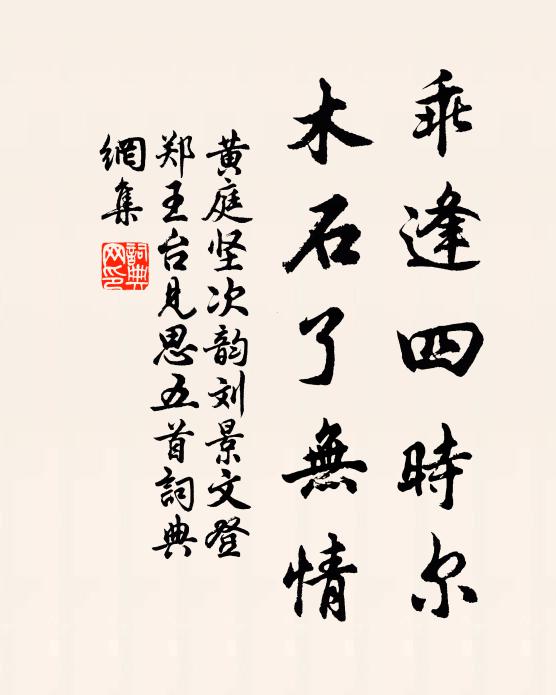 乖逢四時尔
木石了無情
黄庭坚次韵刘景文登
郑王台見思五首詞典
網集
詞典网印